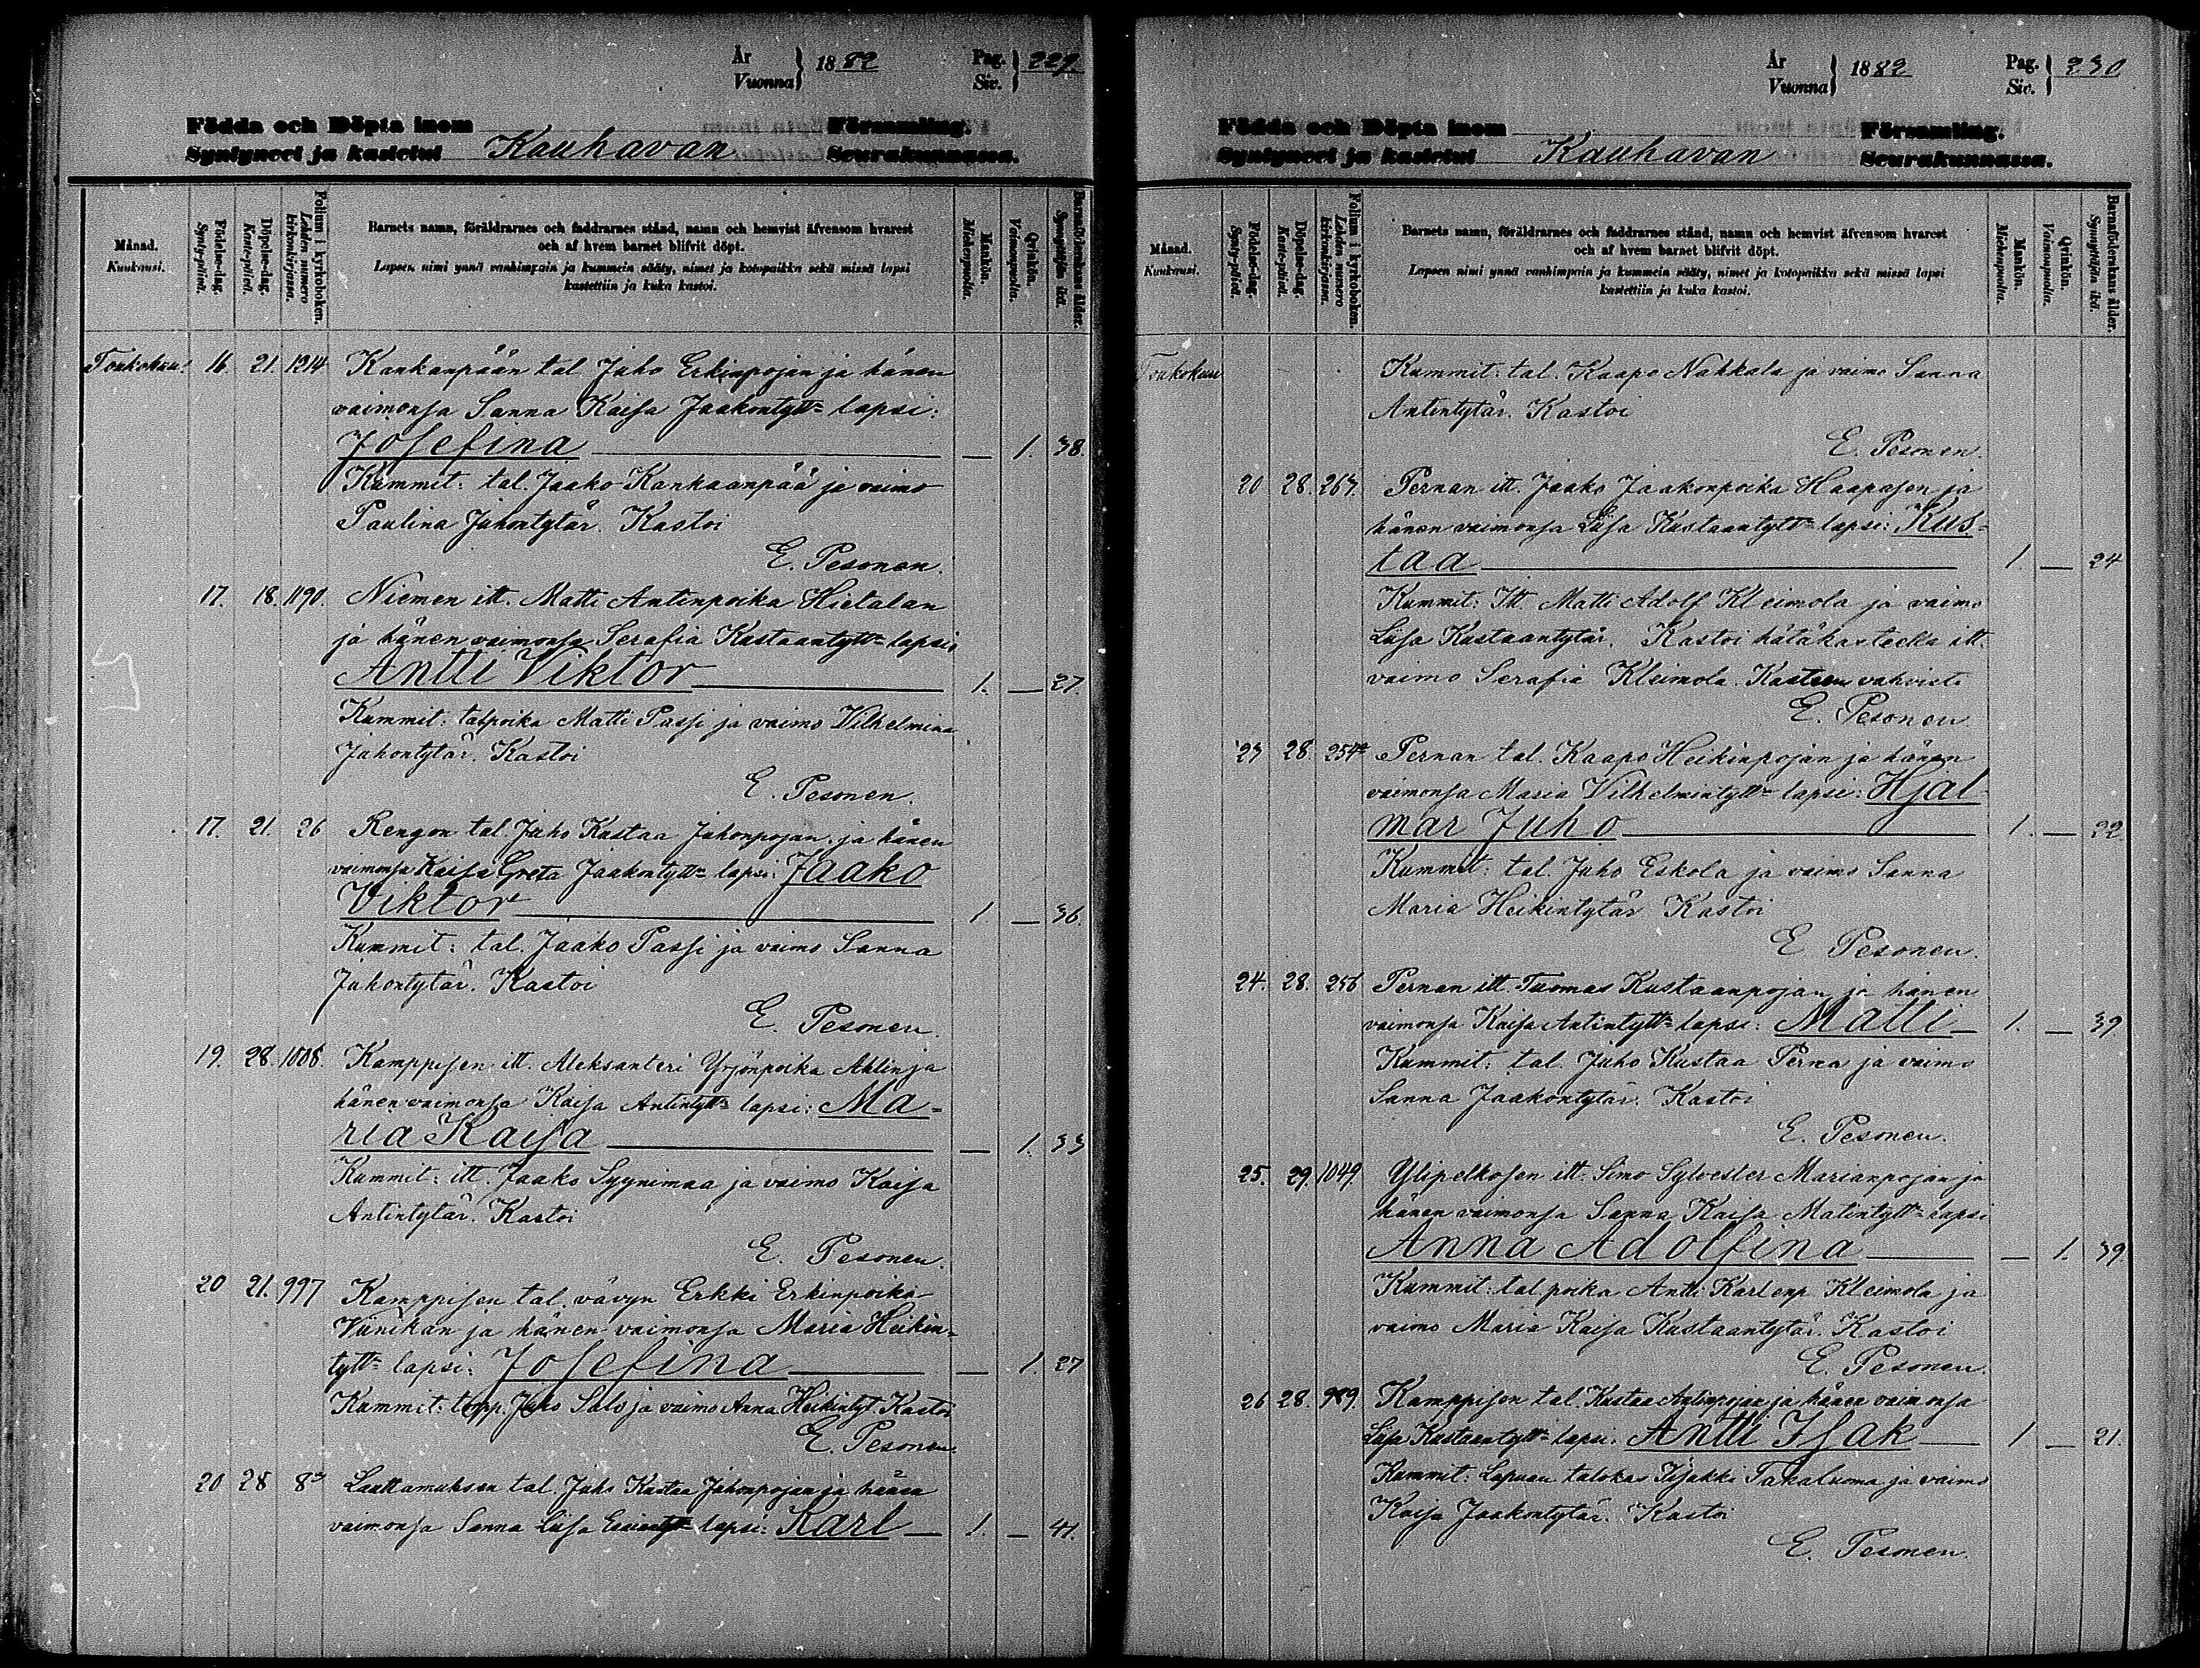 År
Vuonna } 1882 Pag.
Siv. } 229.
Födda och Döpta inom Församling.
Syntyneet ja kastetut Kauhavan Seurakunnassa.
Månad.
Kuukausi.
Födelse-dag.
Synty-päivä.
Döpelse-dag.
Kaste-päivä.
Folium i kyrkoboken.
Lehden numero kirkonkirjassa.
Barnets namn, föräldrarnes och faddrarnes stånd, namn och hemvist äfvensom hvarest
och af hvem barnet blifvit döpt.
Lapsen nimi ynnä vanhimpain ja kummein sääty, nimet ja kotopaikka sekä missä lapsi
kastettiin ja kuka kastoi.
Mankön.
Miehenpuolta.
Qvinkön.
Vaimonpuolta.
Barnaföderskans ålder.
Synnyttäjän ikä.
Toukokuu 16. 21. 1214 Kankanpään tal. Juho Erkinpojan ja hänen
vaimonsa Sanna Kaisa Jaakontytt= lapsi:
Josefina — 1. 38.
Kummit: tal. Jaako Kankaanpää ja vaimo
Paulina Juhontytär. Kastoi
E. Pesonen.
17. 18. 1190. Niemen itt. Matti Antinpoika Hietalan
ja hänen vaimonsa Serafia Kustaantytt= lapsi:
Antti Viktor 1. — 27.
Kummit: talpoika Matti Passi ja vaimo Vilhelmina
Juhontytär. Kastoi
E. Pesonen.
17. 21. 26 Rengon tal. Juho Kustaa Juhonpojan ja hänen
vaimonsa Kaisa Greta Jaakontytt= lapsi: Jaako
Viktor 1 — 36.
Kummit: tal. Jaako Passi ja vaimo Sanna
Juhontytär. Kastoi
E. Pesonen.
19. 28. 1008. Kamppisen itt. Aleksanteri Yrjönpoika Ahlin ja
hänen vaimonsa Kaisa Antintytt= lapsi: Ma-
ria Kaisa — 1. 33
Kummit: itt. Jaako Syynimaa ja vaimo Kaisa
Antintytär. Kastoi
E. Pesonen.
20 21. 997 Kamppisen tal. vävyn Erkki Erkinpoika
Viinikan ja hänen vaimonsa Maria Heikin-
tytt= lapsi: Josefina — 1. 27
Kummit: torpp. Juho Salo ja vaimo Anna Heikintyt. Kastoi
E. Pesonen.
20 28 8 Lauttamuksen tal. Juho Kustaa Juhonpojan ja hänen
vaimonsa Sanna Liisa lapsi: Karl — 1. — 41.
År
Vuonna } 1882 Pag.
Siv. } 230
Födda och Döpta inom Församling.
Syntyneet ja kastetut Kauhavan Seurakunnassa.
Månad.
Kuukausi.
Födelse-dag.
Synty-päivä.
Döpelse-dag.
Kaste-päivä.
Folium i kyrkoboken.
Lehden numero kirkonkirjassa.
Barnets namn, föräldrarnes och faddrarnes stånd, namn och hemvist äfvensom hvarest
och af hvem barnet blifvit döpt.
Lapsen nimi ynnä vanhimpain ja kummein sääty, nimet ja kotopaikka sekä missä lapsi
kastettiin ja kuka kastoi.
Mankön.
Miehenpuolta.
Qvinkön.
Vaimonpuolta.
Barnaföderskans ålder.
Synnyttäjän ikä.
Toukokuu Kummit: tal. Kaapo Nahkala ja vaimo Sanna
Antintytär. Kastoi
E. Pesonen.
20 28. 267. Pernan itt. Jaako Jaakonpoika Haapasen ja
hänen vaimonsa Liisa Kustaantytt= lapsi: Kus-
taa 1. — 24
Kummit: Itt. Matti Adolf Kleimola ja vaimo
Liisa Kustaantytär. Kastoi hätäkasteella itt.
vaimo Serafia Kleimola. Kasteen vahvisti
E. Pesonen
23 28. 254 Pernan tal. Kaapo Heikinpojan ja hänen
vaimonsa Maria Vilhelmintytt= lapsi: Hjal-
mar Juho 1. — 22
Kummit: tal. Juho Eskola ja vaimo Sanna
Maria Heikintytär Kastoi
E. Pesonen.
24. 28. 256 Pernan itt. Tuomas Kustaanpojan ja hänen
vaimonsa Kaisa Antintytt= lapsi: Matti 1. — 39
Kummit: tal. Juho Kustaa Perna ja vaimo
Sanna Jaakontytär. Kastoi
E. Pesonen.
25. 29. 1049. Ylipelkosen itt. Simo Sylvester Marianpojan ja
hänen vaimonsa Sanna Kaisa Matintytt= lapsi
Anna Adolfina — 1. 39.
Kummit: tal poika Antti Karlenp. Kleimola ja
vaimo Maria Kaisa Kustaantytär. Kastoi
E. Pesonen.
26 28. 989. Kamppisen tal. Kustaa Antinpojan ja hänen vaimonsa
Liisa Kustaantytt= lapsi: Antti Isak 1 — 21.
Kummit: Lapuan talokas Iisakki Takaluoma ja vaimo
Kaisa Jaakontytär. Kastoi
E. Pesonen.